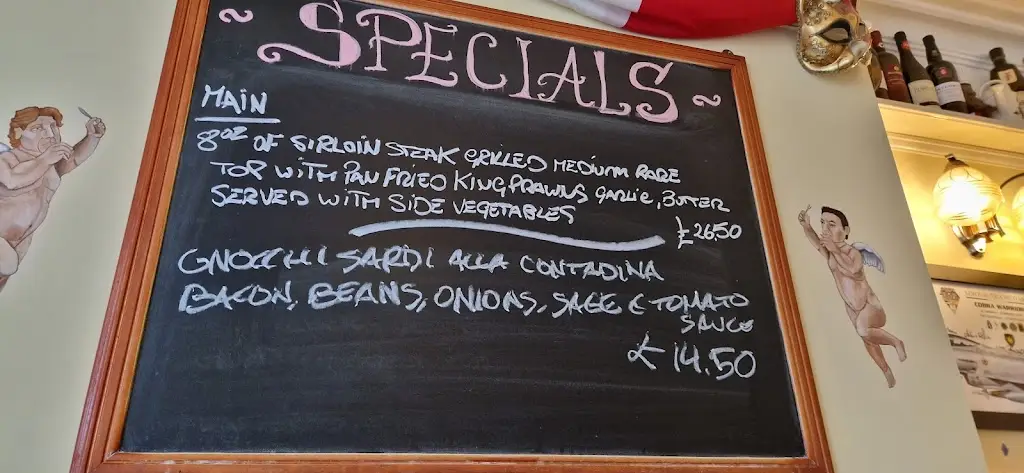 ~ SPECIALS ~
MAIN
8oz OF SIRLOIN STEAK GRILLED MEDIUM RARE
TOP WITH PAN FRIED KING PRAWNS GARLIC, BUTTER
SERVED WITH SIDE VEGETABLES
£26.50
GNOCCHI SARDI ALLA CONTADINA
BACON, BEANS, ONIONS, SAGE & TOMATO
SAUCE
£14.50